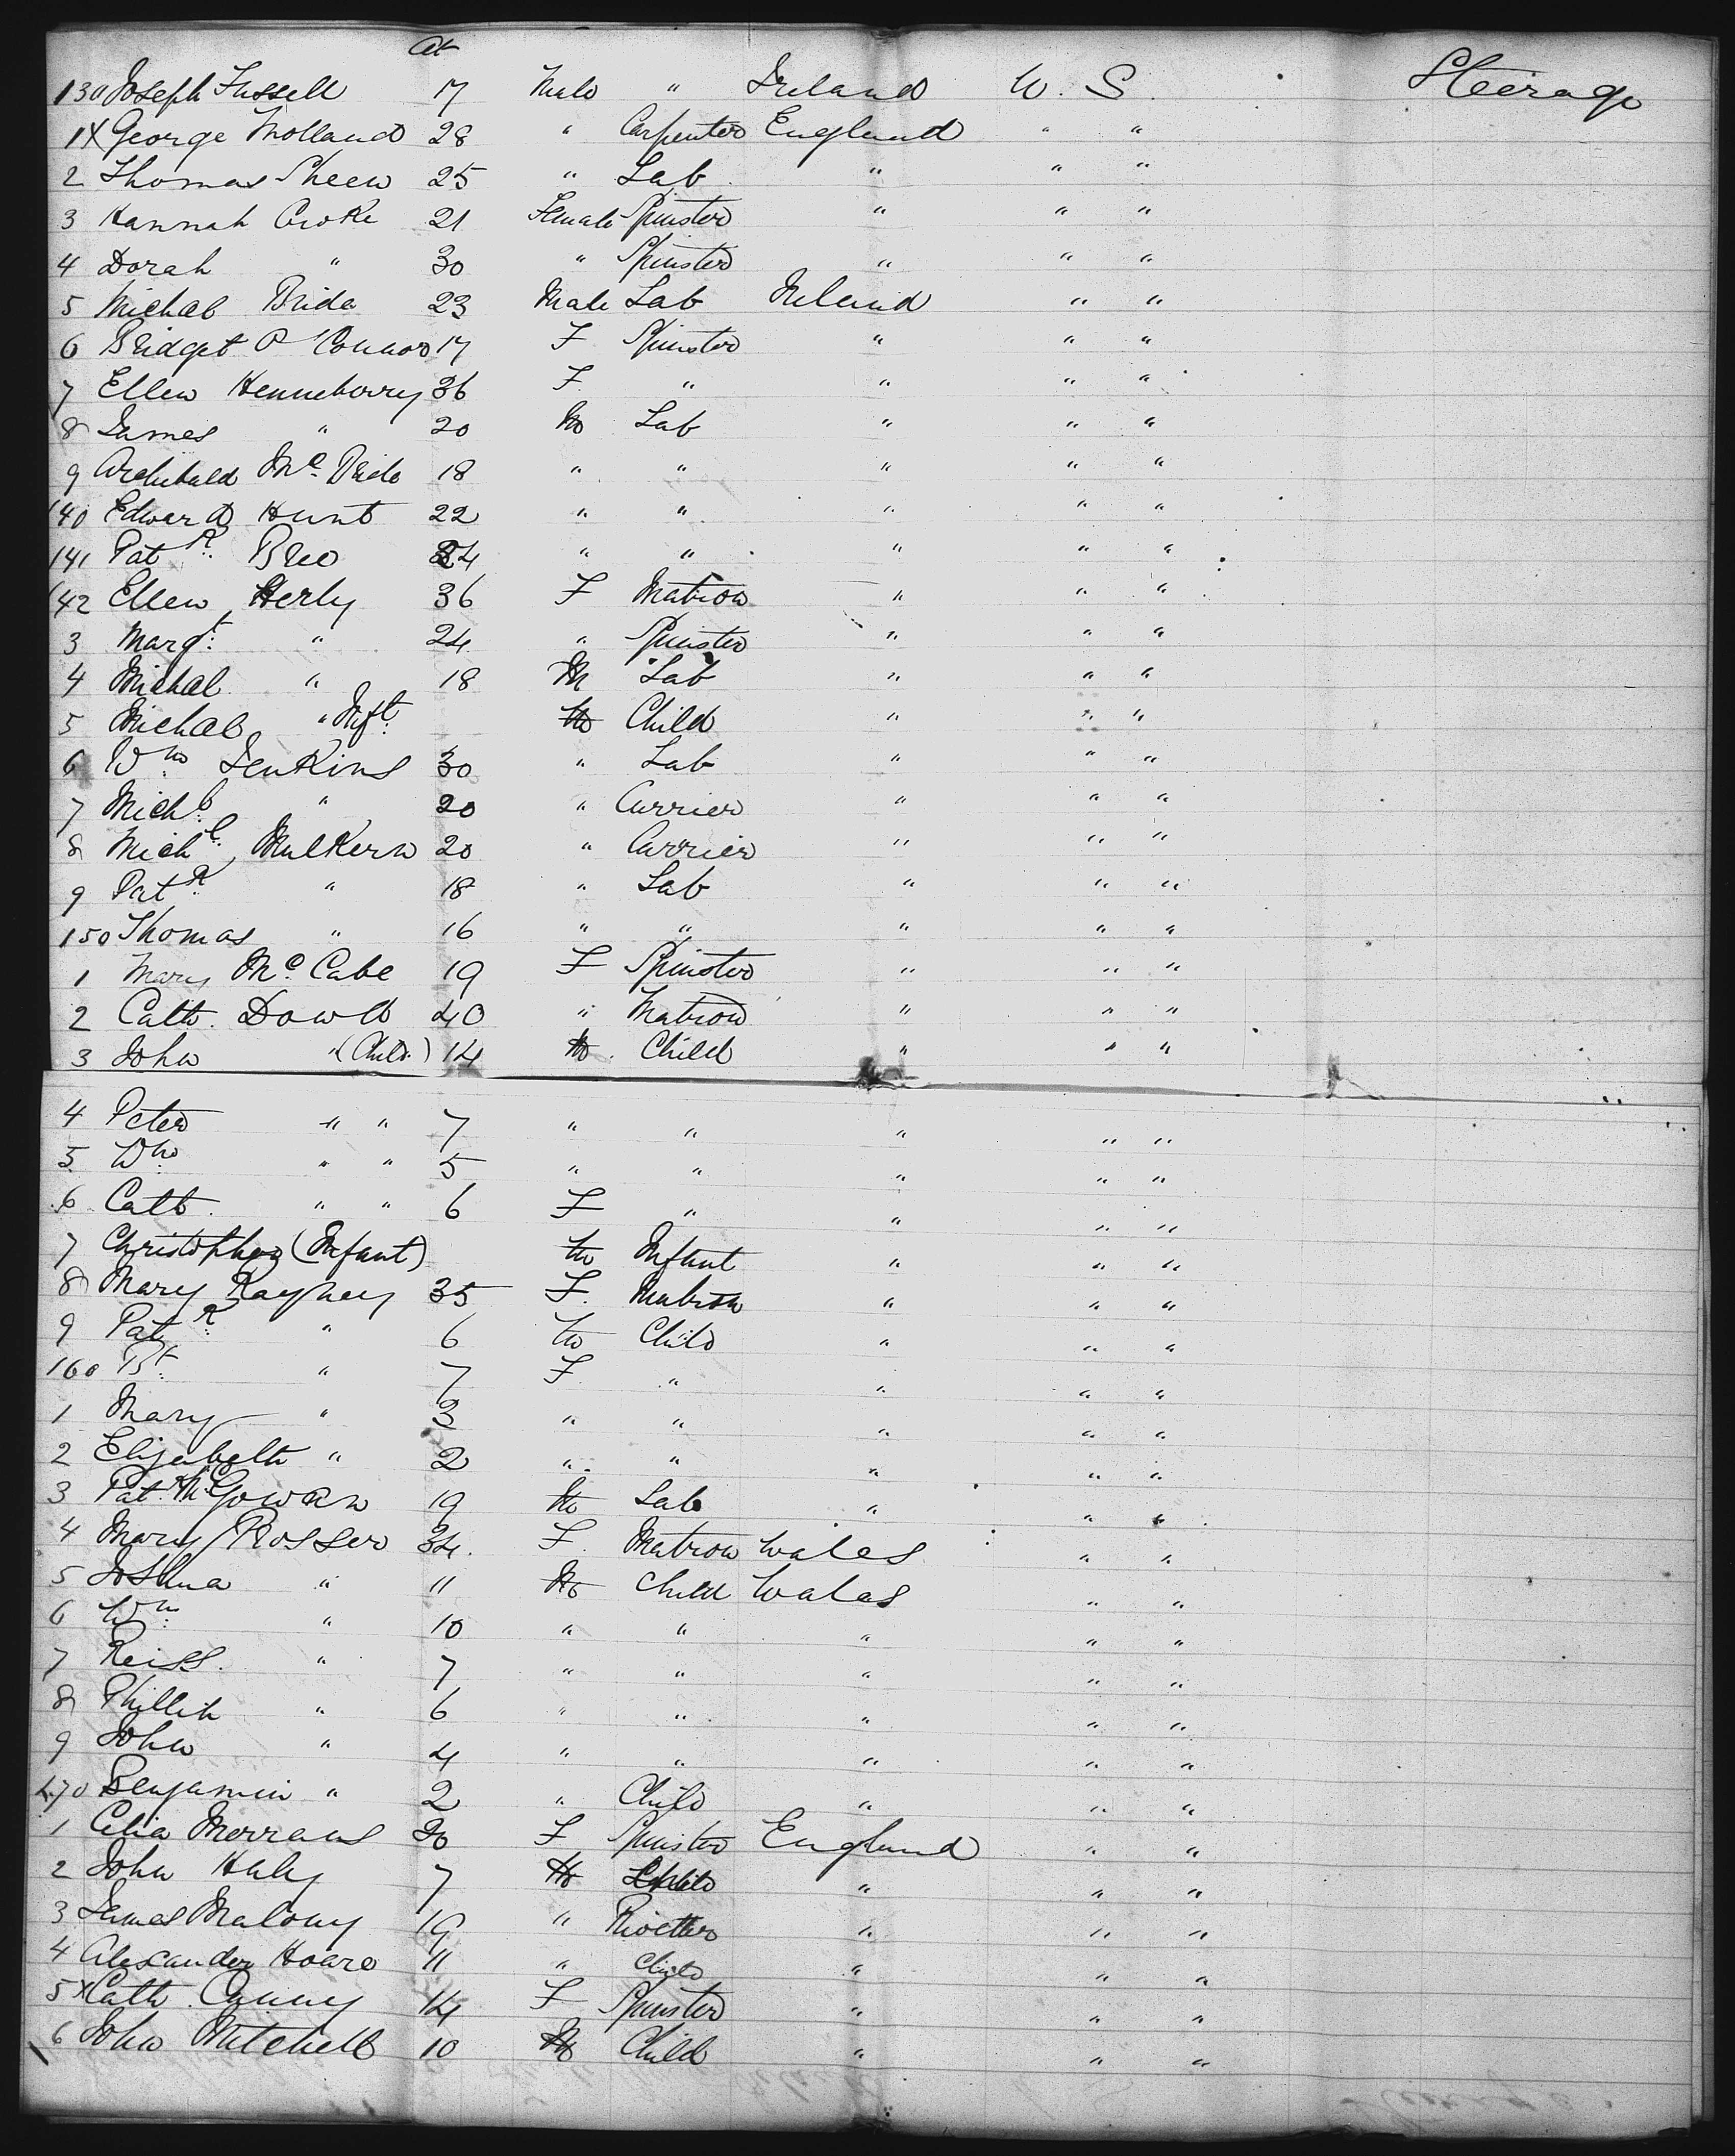 At
130 Joseph Fussell 17 Male " Ireland U. S. Steerage
1X George Molland 28 " Carpenter England " "
2 Thomas Skeen 25 " Lab " " "
3 Hannah Croke 21 Female Spinster " " "
4 Dorah " 30 " Spinster " " "
5 Michael Brida 23 Male Lab Ireland " "
6 Bridget O'Connor 17 F Spinster " " "
7 Ellen Henneberry 36 F " " " "
8 James " 20 M Lab " " "
9 Archibald Mc Bride 18 " " " " "
140 Edward Hunt 22 " " " " "
141 Patk 24 " " " " "
142 Ellen Herly 36 F Matron " " "
3 Margt " 24 " Spinster " " "
4 Michal " 18 M Lab " " "
5 Michal " Inft. M Child " " "
6 Wm Jenkins 30 " Lab " " "
7 Michl " 20 " Currier " " "
8 Michl Mulkern 20 " Currier " " "
9 Patk " 18 " Lab " " "
150 Thomas " 16 " " " " "
1 Mary Mc Cabe 19 F Spinster " " "
2 Cath. Dowd 40 " Matron " " "
3 John " (Child) 14 M. Child " " "
4 Peter " " 7 " " " " "
5 Wm " " 5 " " " " "
6 Cath. " " 6 F " " " "
7 Christopher (Infant) M Infant " " "
8 Mary 35 F. Matron " " "
9 Patk " 6 M Child " " "
160 Bt " 7 F " " " "
1 Mary " 3 " " " " "
2 Elizabeth " 2 " " " " "
3 Patk McGowan 19 M Lab " " "
4 Mary Rosser 34 F. Matron Wales " "
5 Joshua " 11 M Child Wales " "
6 Wm " 10 " " " " "
7 Reiss. " 7 " " " " "
8 Phillip " 6 " " " " "
9 John " 4 " " " " "
170 Benjamin " 2 " Child " " "
1 Celia Merrans 20 F Spinster England " "
2 John Haly 7 M Child " " "
3 James Malony 19 " Rivetter " " "
4 Alexander Hoare 11 " Child " " "
5X Cath. Canny 14 F Spinster " " "
6 John Mitchell 10 M Child " " "